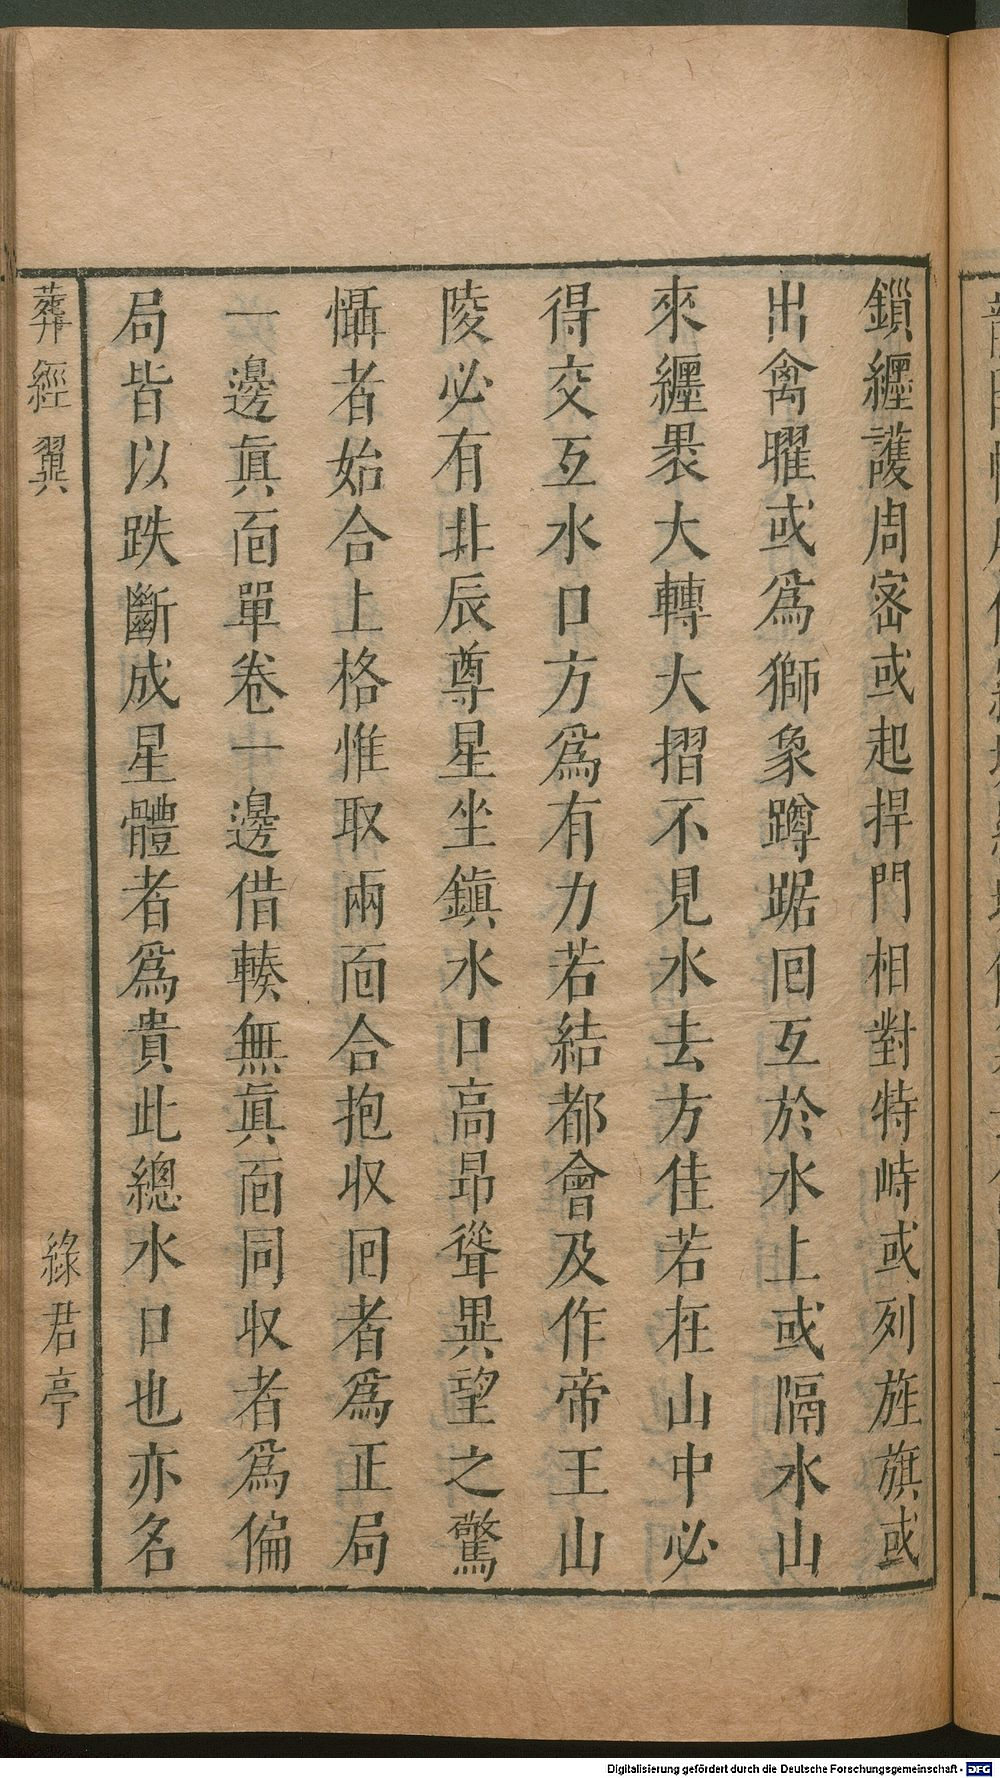 鎖纒護周宻或起捍門相對特峙或列旌旗或
出禽曜或爲獅象蹲踞囘互於水上或隔水山
來纒褁大轉大摺不見水去方佳若在山中必
得交互水口方爲有力若結都會及作帝王山
陵必有北辰尊星坐鎭水口高昂聳異望之驚
懾者始合上格惟取兩靣合抱収囘者爲正局
一邊眞靣單卷一邊借輳無眞靣同収者爲偏
局皆以跌斷成星體者爲貴此總水口也亦名
葬經翼
綠君亭
Digitalisierung gefördert durch die Deutsche Forschungsgemeinschaft - DFG